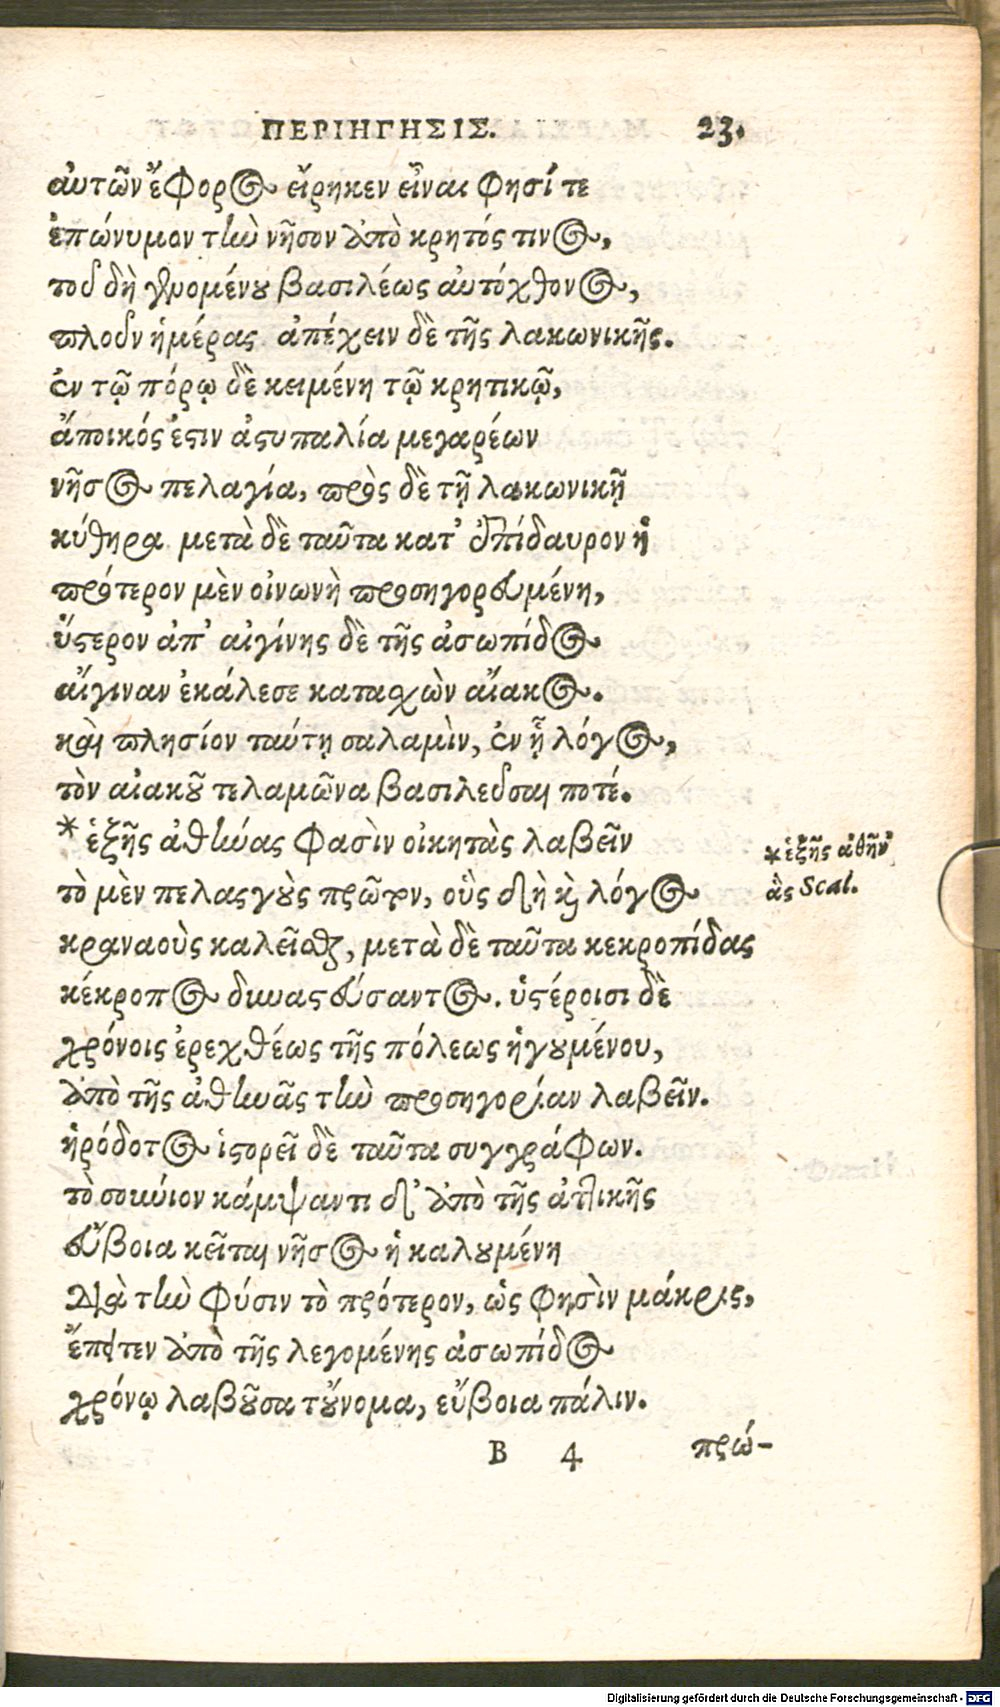 ΠΕΡΙΗΓΗΣΙΣ. 23.
αὐτῶν ἔφορος εἴρηκεν εἶναι φησί τε
ἐπώνυμον τὴν νῆσον ἀπὸ κρητός τινος,
τοῦ δὴ γενομένου βασιλέως αὐτόχθονος,
πλοῦν ἡμέρας ἀπέχειν δὲ τῆς λακωνικῆς.
ἐν τῷ πόρῳ δὲ κειμένη τῷ κρητικῷ,
ἄποικός ἐστιν ἀστυπαλία μεγαρέων
νῆσος πελαγία, πρὸς δὲ τῇ λακωνικῇ
κύθηρα μετὰ δὲ ταῦτα κατ' ἐπίδαυρον ἡ
πρότερον μὲν οἰνωνὴ προσηγορευμένη,
ὕστερον ἀπ' αἰγίνης δὲ τῆς ἀσωπίδος
αἴγιναν ἐκάλεσε κατασχὼν αἴακος.
καὶ πλησίον ταύτῃ σαλαμὶν, ἐν ᾗ λόγος,
τὸν αἰακοῦ τελαμῶνα βασιλεῦσαι ποτέ.
* ἑξῆς ἀθήνας φασὶν οἰκητὰς λαβεῖν
τὸ μὲν πελασγοὺς πρῶτον, οὓς δὴ καὶ λόγος
κραναοὺς καλεῖσθαι, μετὰ δὲ ταῦτα κεκροπίδας
κέκροπος δυναστεύσαντος. ὑστέροισι δὲ
χρόνοις ἐρεχθέως τῆς πόλεως ἡγουμένου,
ἀπὸ τῆς ἀθηνᾶς τὴν προσηγορίαν λαβεῖν.
ἡρόδοτος ἱστορεῖ δὲ ταῦτα συγγράφων.
τὸ σουνίον κάμψαντι δ' ἀπὸ τῆς ἀττικῆς
εὔβοια κεῖται νῆσος ἡ καλουμένη
διὰ τὴν φύσιν τὸ πρότερον, ὡς φησὶν μάκρις,
ἔπειτεν ἀπὸ τῆς λεγομένης ἀσωπίδος
χρόνῳ λαβοῦσα τοὔνομα, εὔβοια πάλιν.
B 4 πρώ-
* ἑξῆς ἀθῆν'
ἃς Scal.
Digitalisierung gefördert durch die Deutsche Forschungsgemeinschaft - DFG